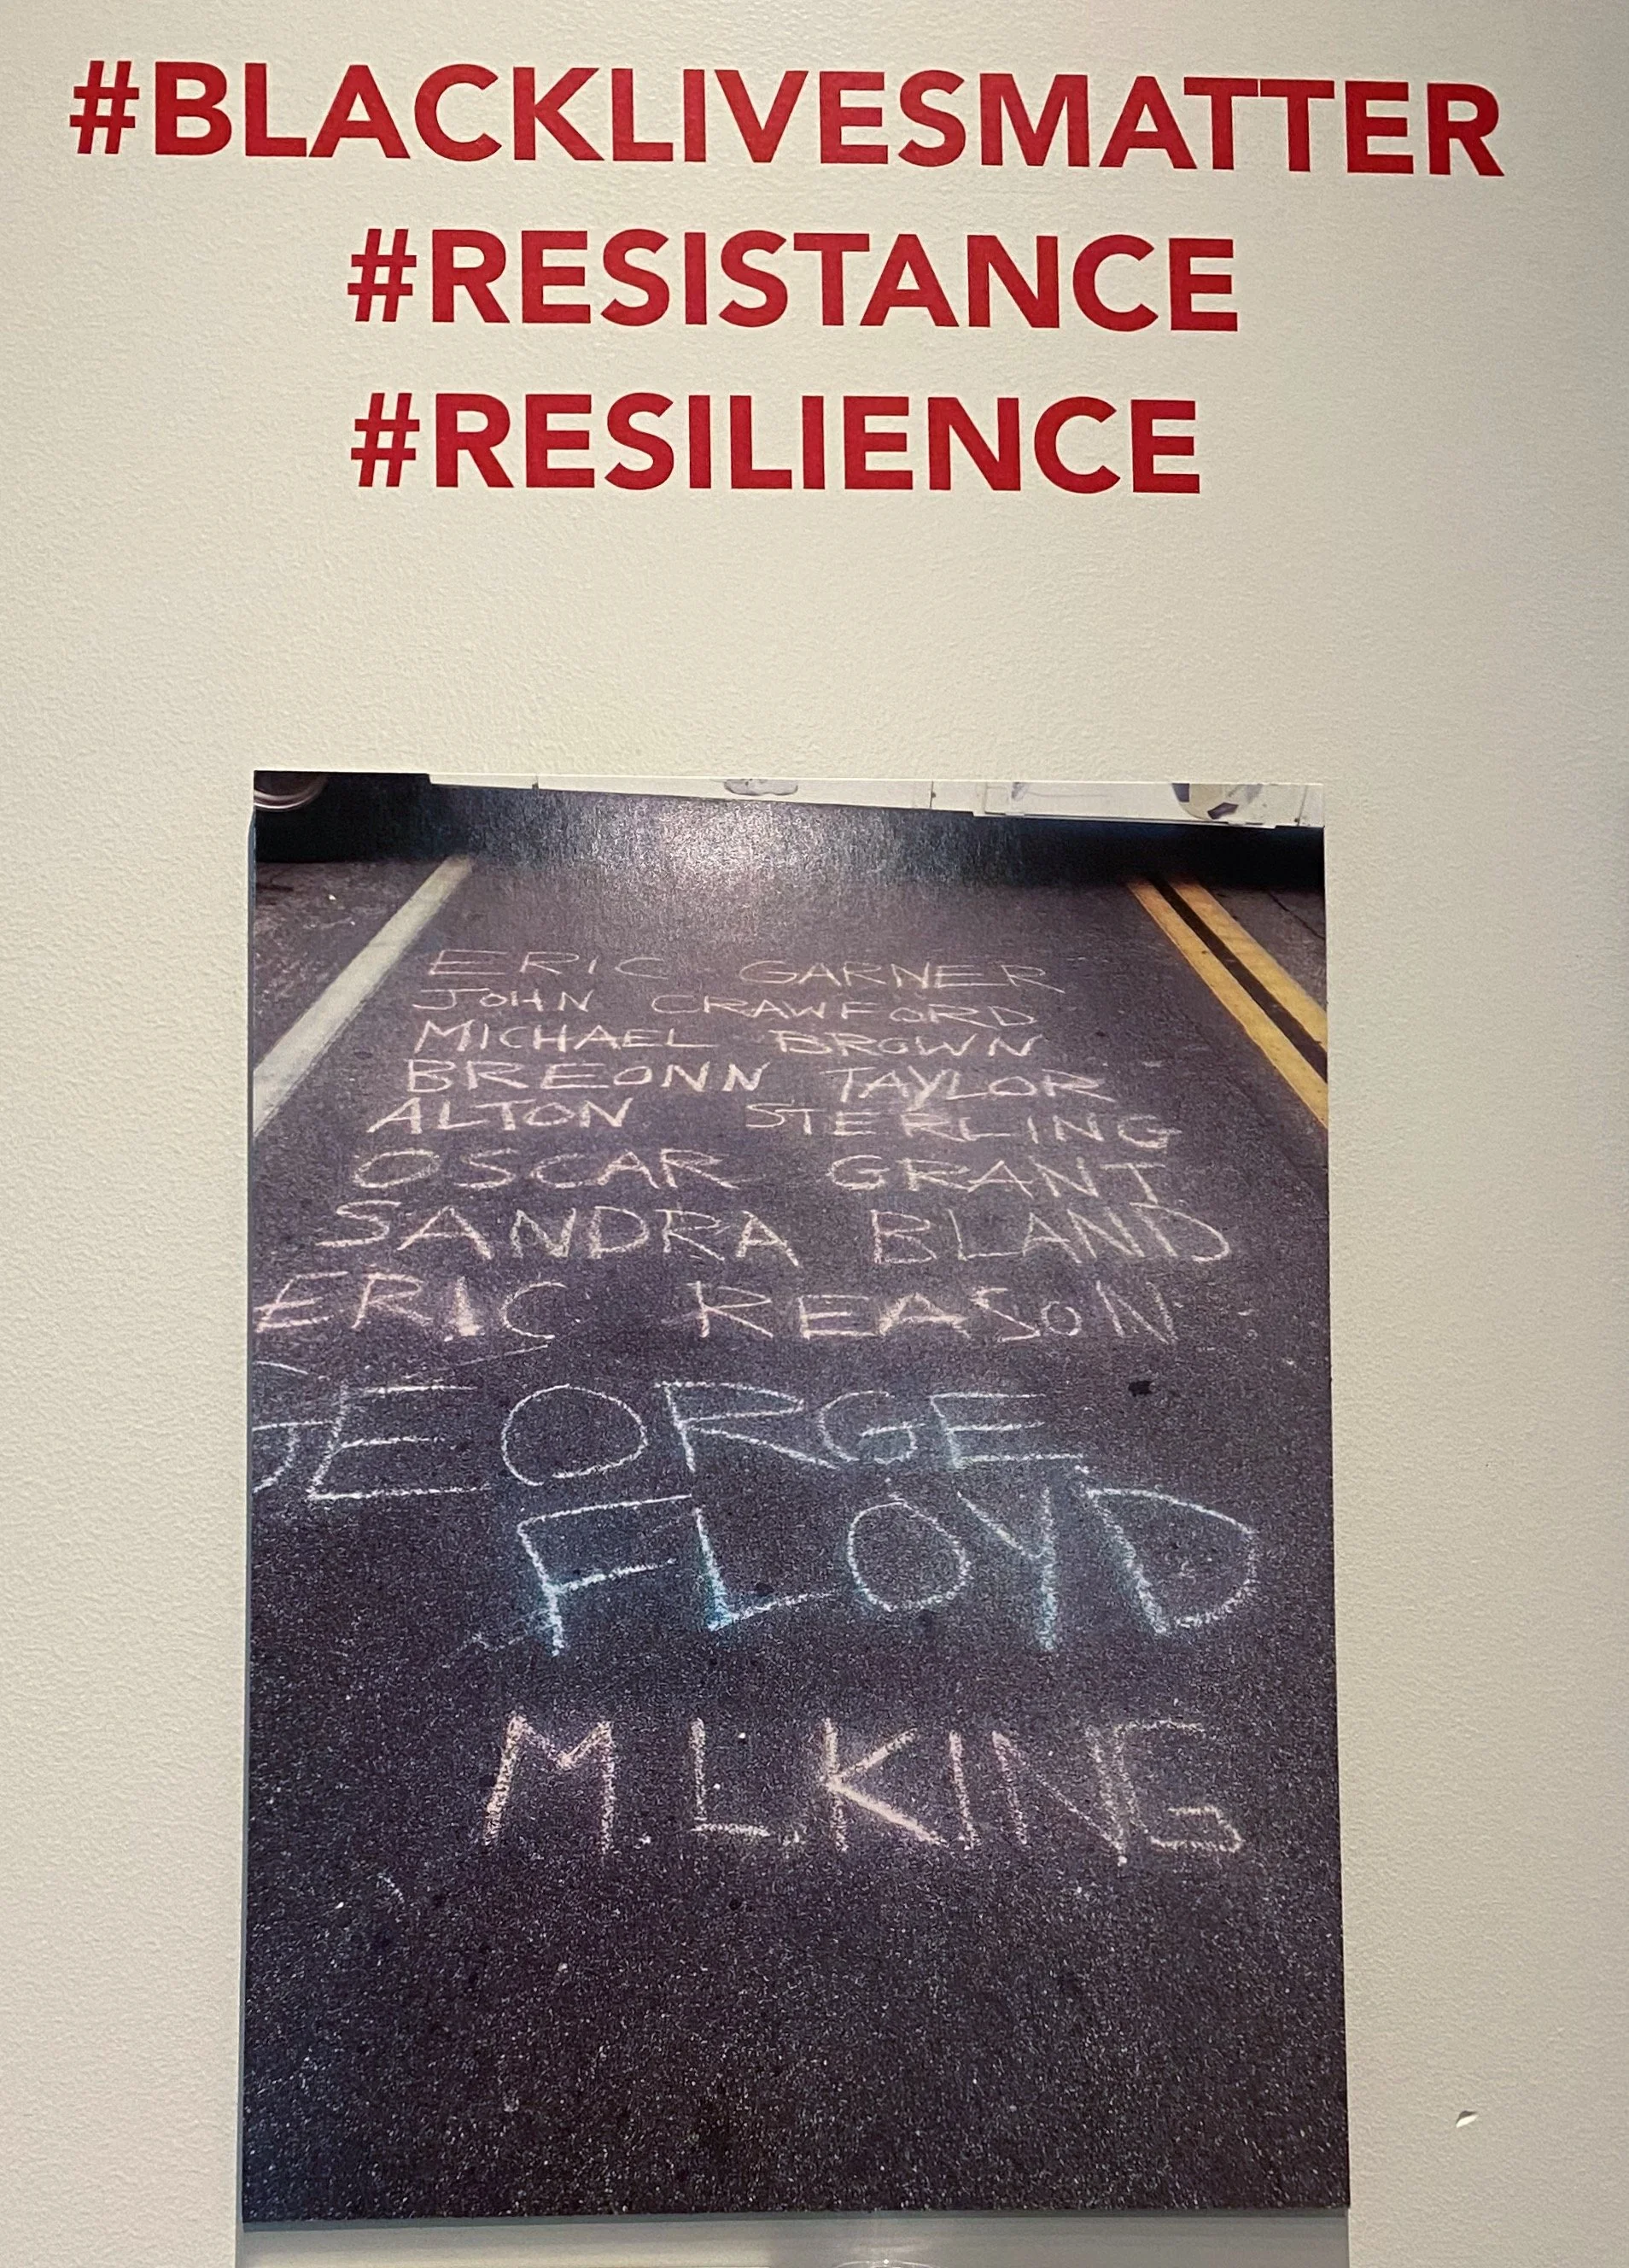 #BLACKLIVESMATTER
#RESISTANCE
#RESILIENCE
ERIC GARNER
JOHN CRAWFORD
MICHAEL BROWN
BREONN TAYLOR
ALTON STERLING
OSCAR GRANT
SANDRA BLAND
ERIC REASON
GEORGE
FLOYD
M.L.KING